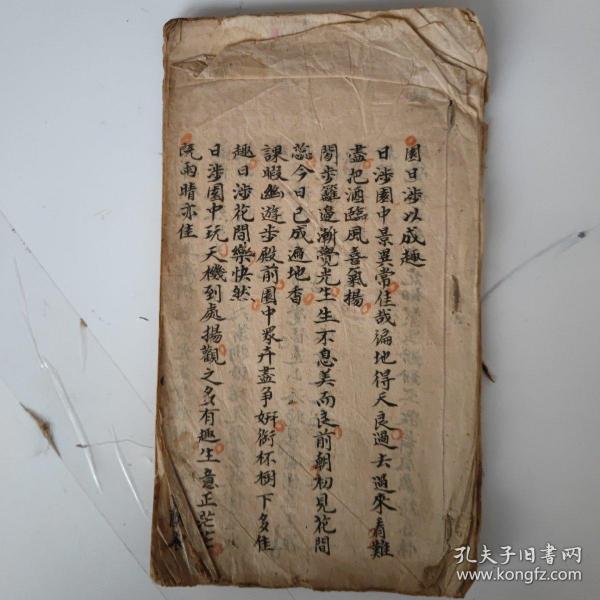 園日涉以成趣
日涉園中景異常佳哉遍地得天良過去過來看難
盡把酒臨風喜氣揚
間步籬邊漸覺光生生不息美而良前朝初見花間
蕊今日已成遍地香
課暇幽遊步殿前園中眾卉盡爭妍銜杯樹下多佳
趣日涉花間樂快然
日涉園中玩天機到處揚觀之多有趣生意正茫亡
阮雨晴亦佳
孔夫子旧书网
www.kongfz.com